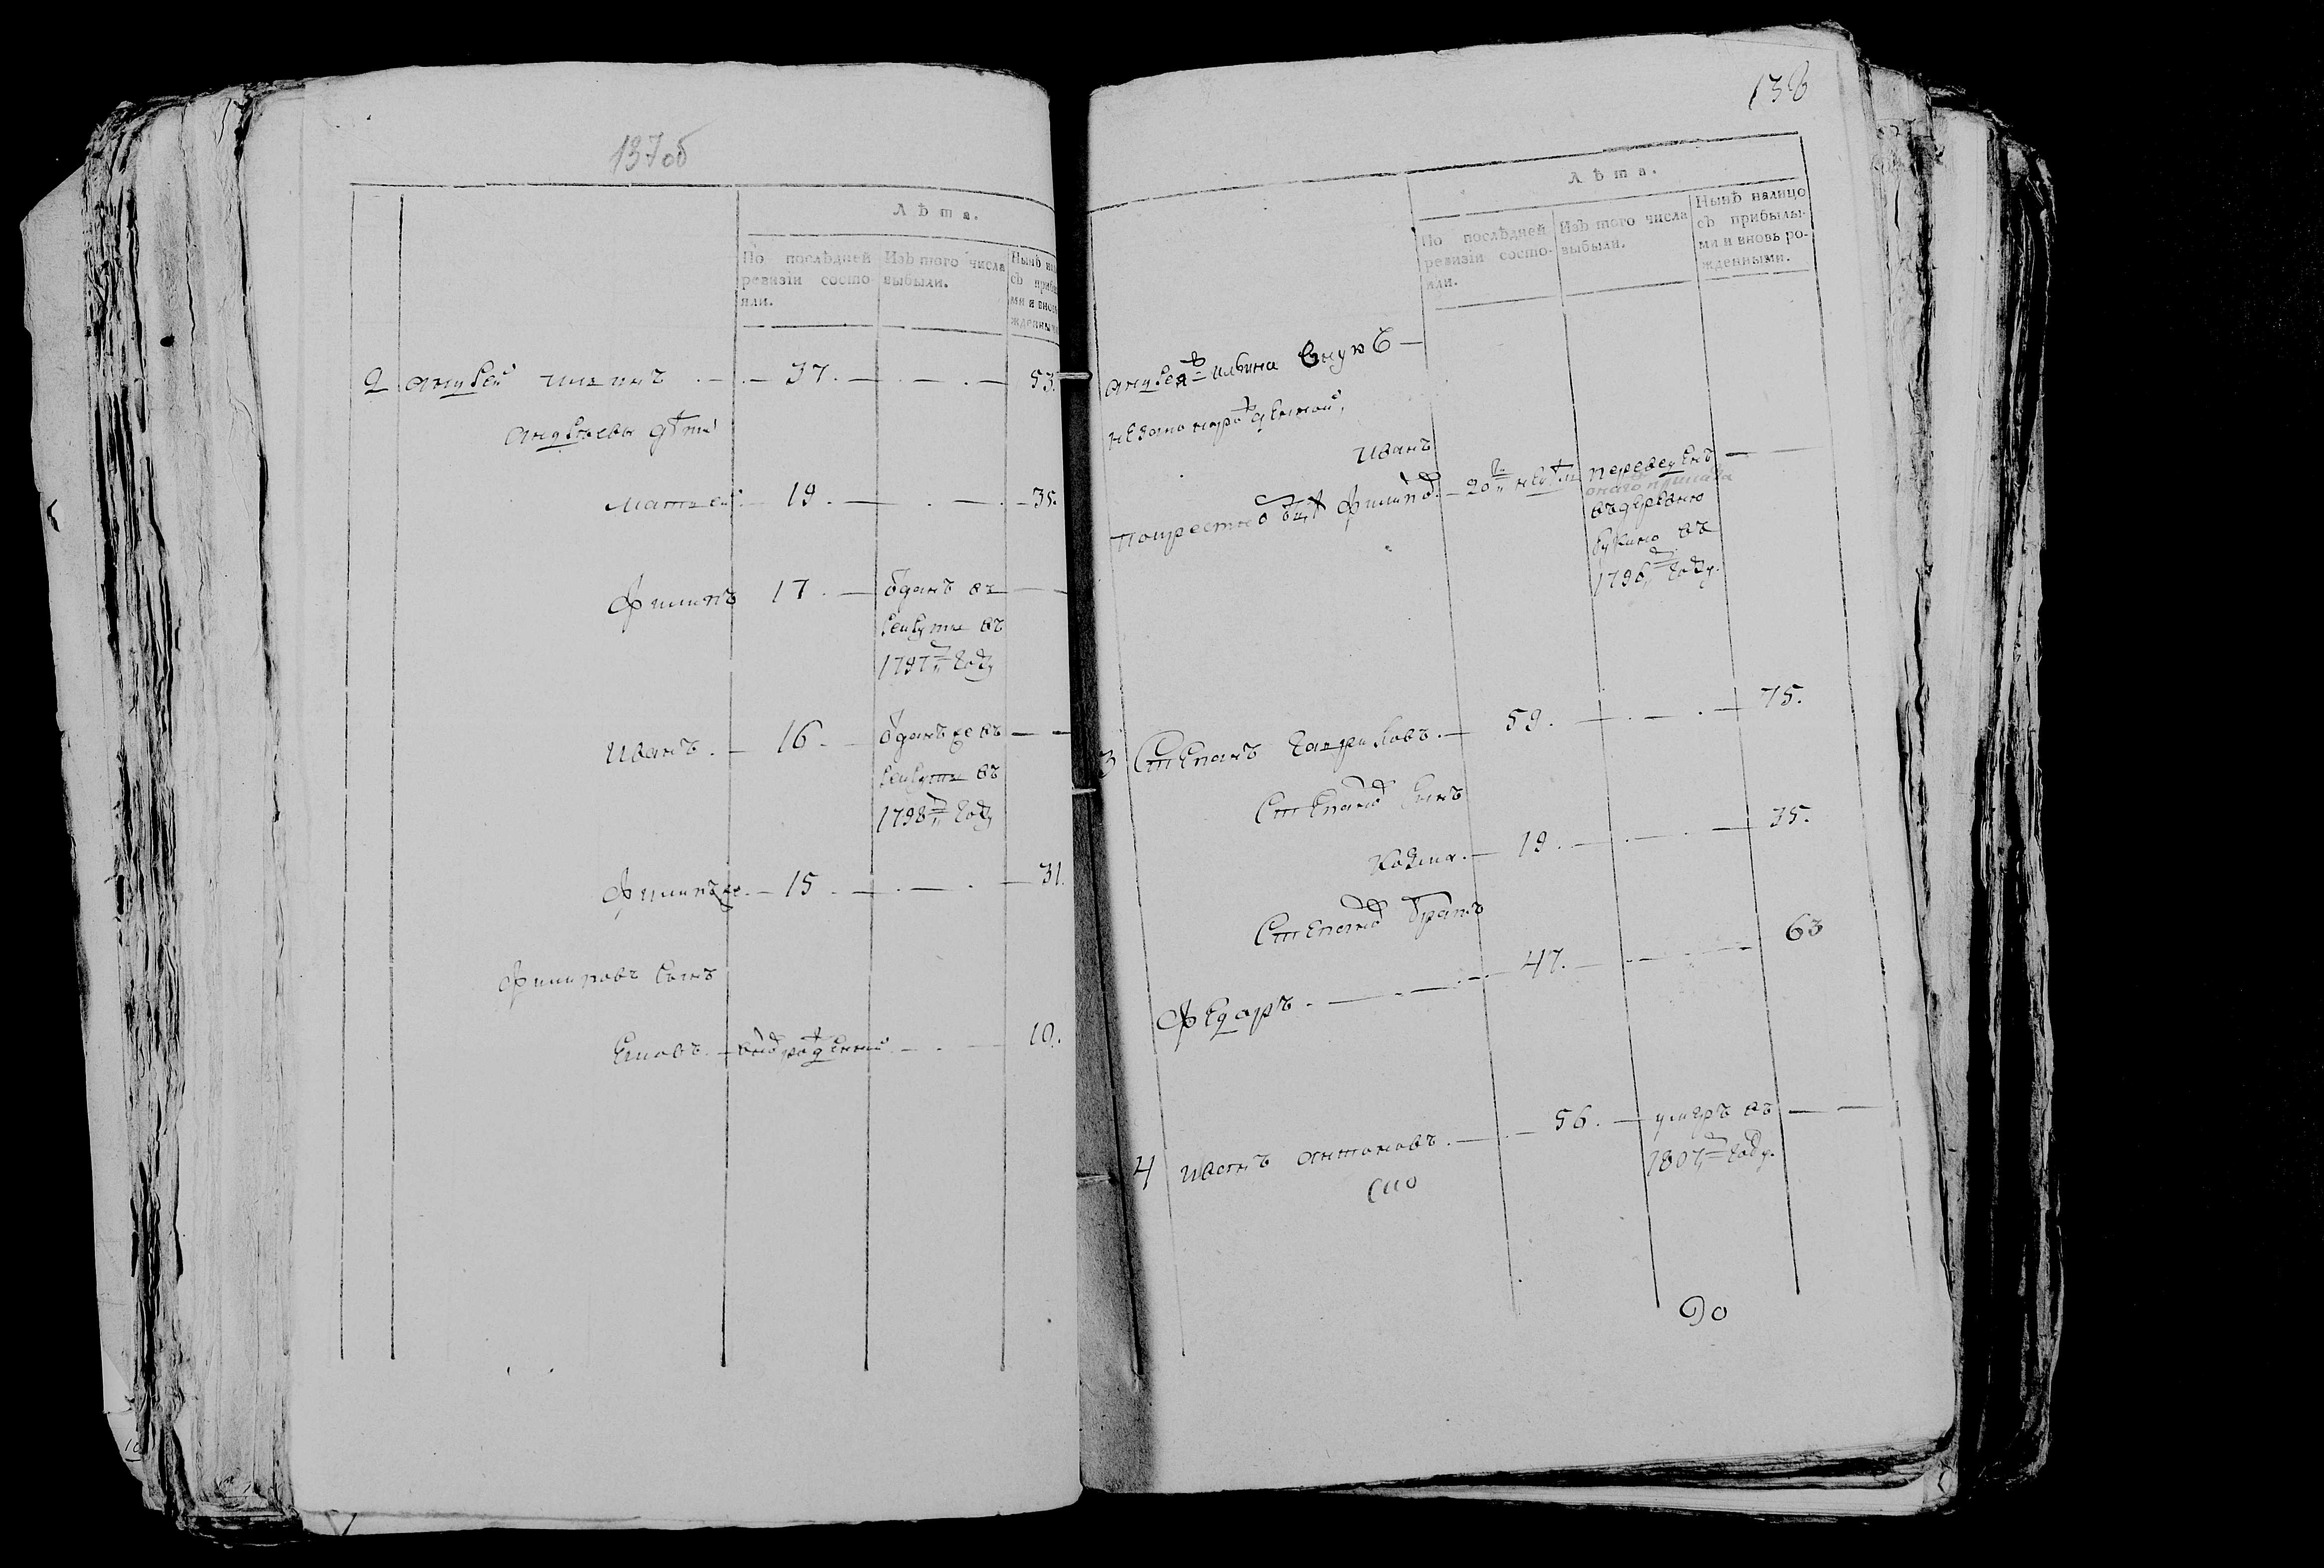 137об
Лѣта.
По послѣдней ревизіи состояли.
Изъ того числа выбыли.
Нынѣ
съ
ми и вновь
жденными
2 андрей ильинъ 37. 53.
андреевы дѣти
матвей 19. 35.
филипъ 17. отданъ въ
рекруты въ
1797м году
иванъ. 16. отданъ же въ
рекруты въ
1798м году
филипъ же. 15. 31.
филиповъ сынъ
вновь рожденной 10.
138
Лѣта.
По послѣдней ревизіи состояли.
Изъ того числа выбыли.
Нынѣ налицо съ прибылыми и вновь рожденными.
андрея ильина внукъ
незаконнорожденной
иванъ
филипъ 20ти недѣль переведенъ
въ деревню
въ
1796м году.
3 Степанъ гавриловъ. 59. 75.
Степановъ сынъ
козма. 19. 35.
Степановъ братъ
федаръ. 47. 63
4 иванъ антоновъ. 56. умеръ въ
1807м году.